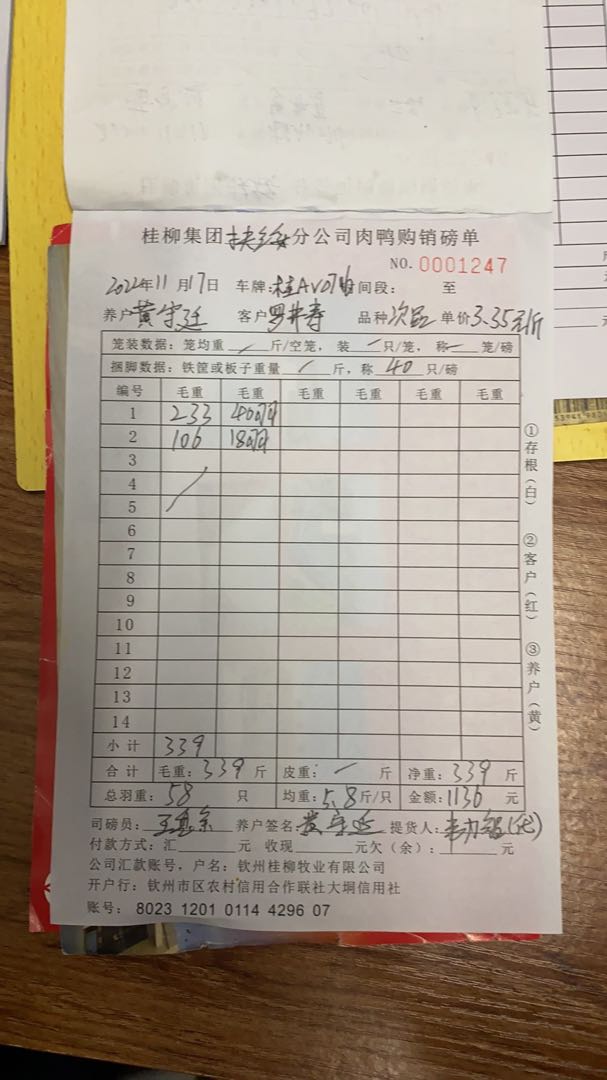 桂柳集团扶绥分公司肉鸭购销磅单
NO. 0001247
2022年11月17日 车牌:桂AV07 时间段: 至
养户黄守廷 客户罗井寿 品种次品 单价3.35元/斤
笼装数据:笼均重/斤/空笼,装/只/笼,称/笼/磅
捆脚数据:铁筐或板子重量/斤,称40只/磅
编号 毛重 毛重 毛重 毛重 毛重 毛重
1 233 40只
2 106 18只
3
4
5
6
7
8
9
10
11
12
13
14
小计 339
合计 毛重:339斤 皮重:/斤 净重:339斤
总羽重:58只 均重:5.8斤/只 金额:1136元
司磅员: 养户签名:黄守廷 提货人: (代)
付款方式:汇 元 收现 元欠(余): 元
公司汇款账号,户名:钦州桂柳牧业有限公司
开户行:钦州市区农村信用合作联社大垌信用社
账号: 8023 1201 0114 4296 07
①存根(白) ②客户(红) ③养户(黄)